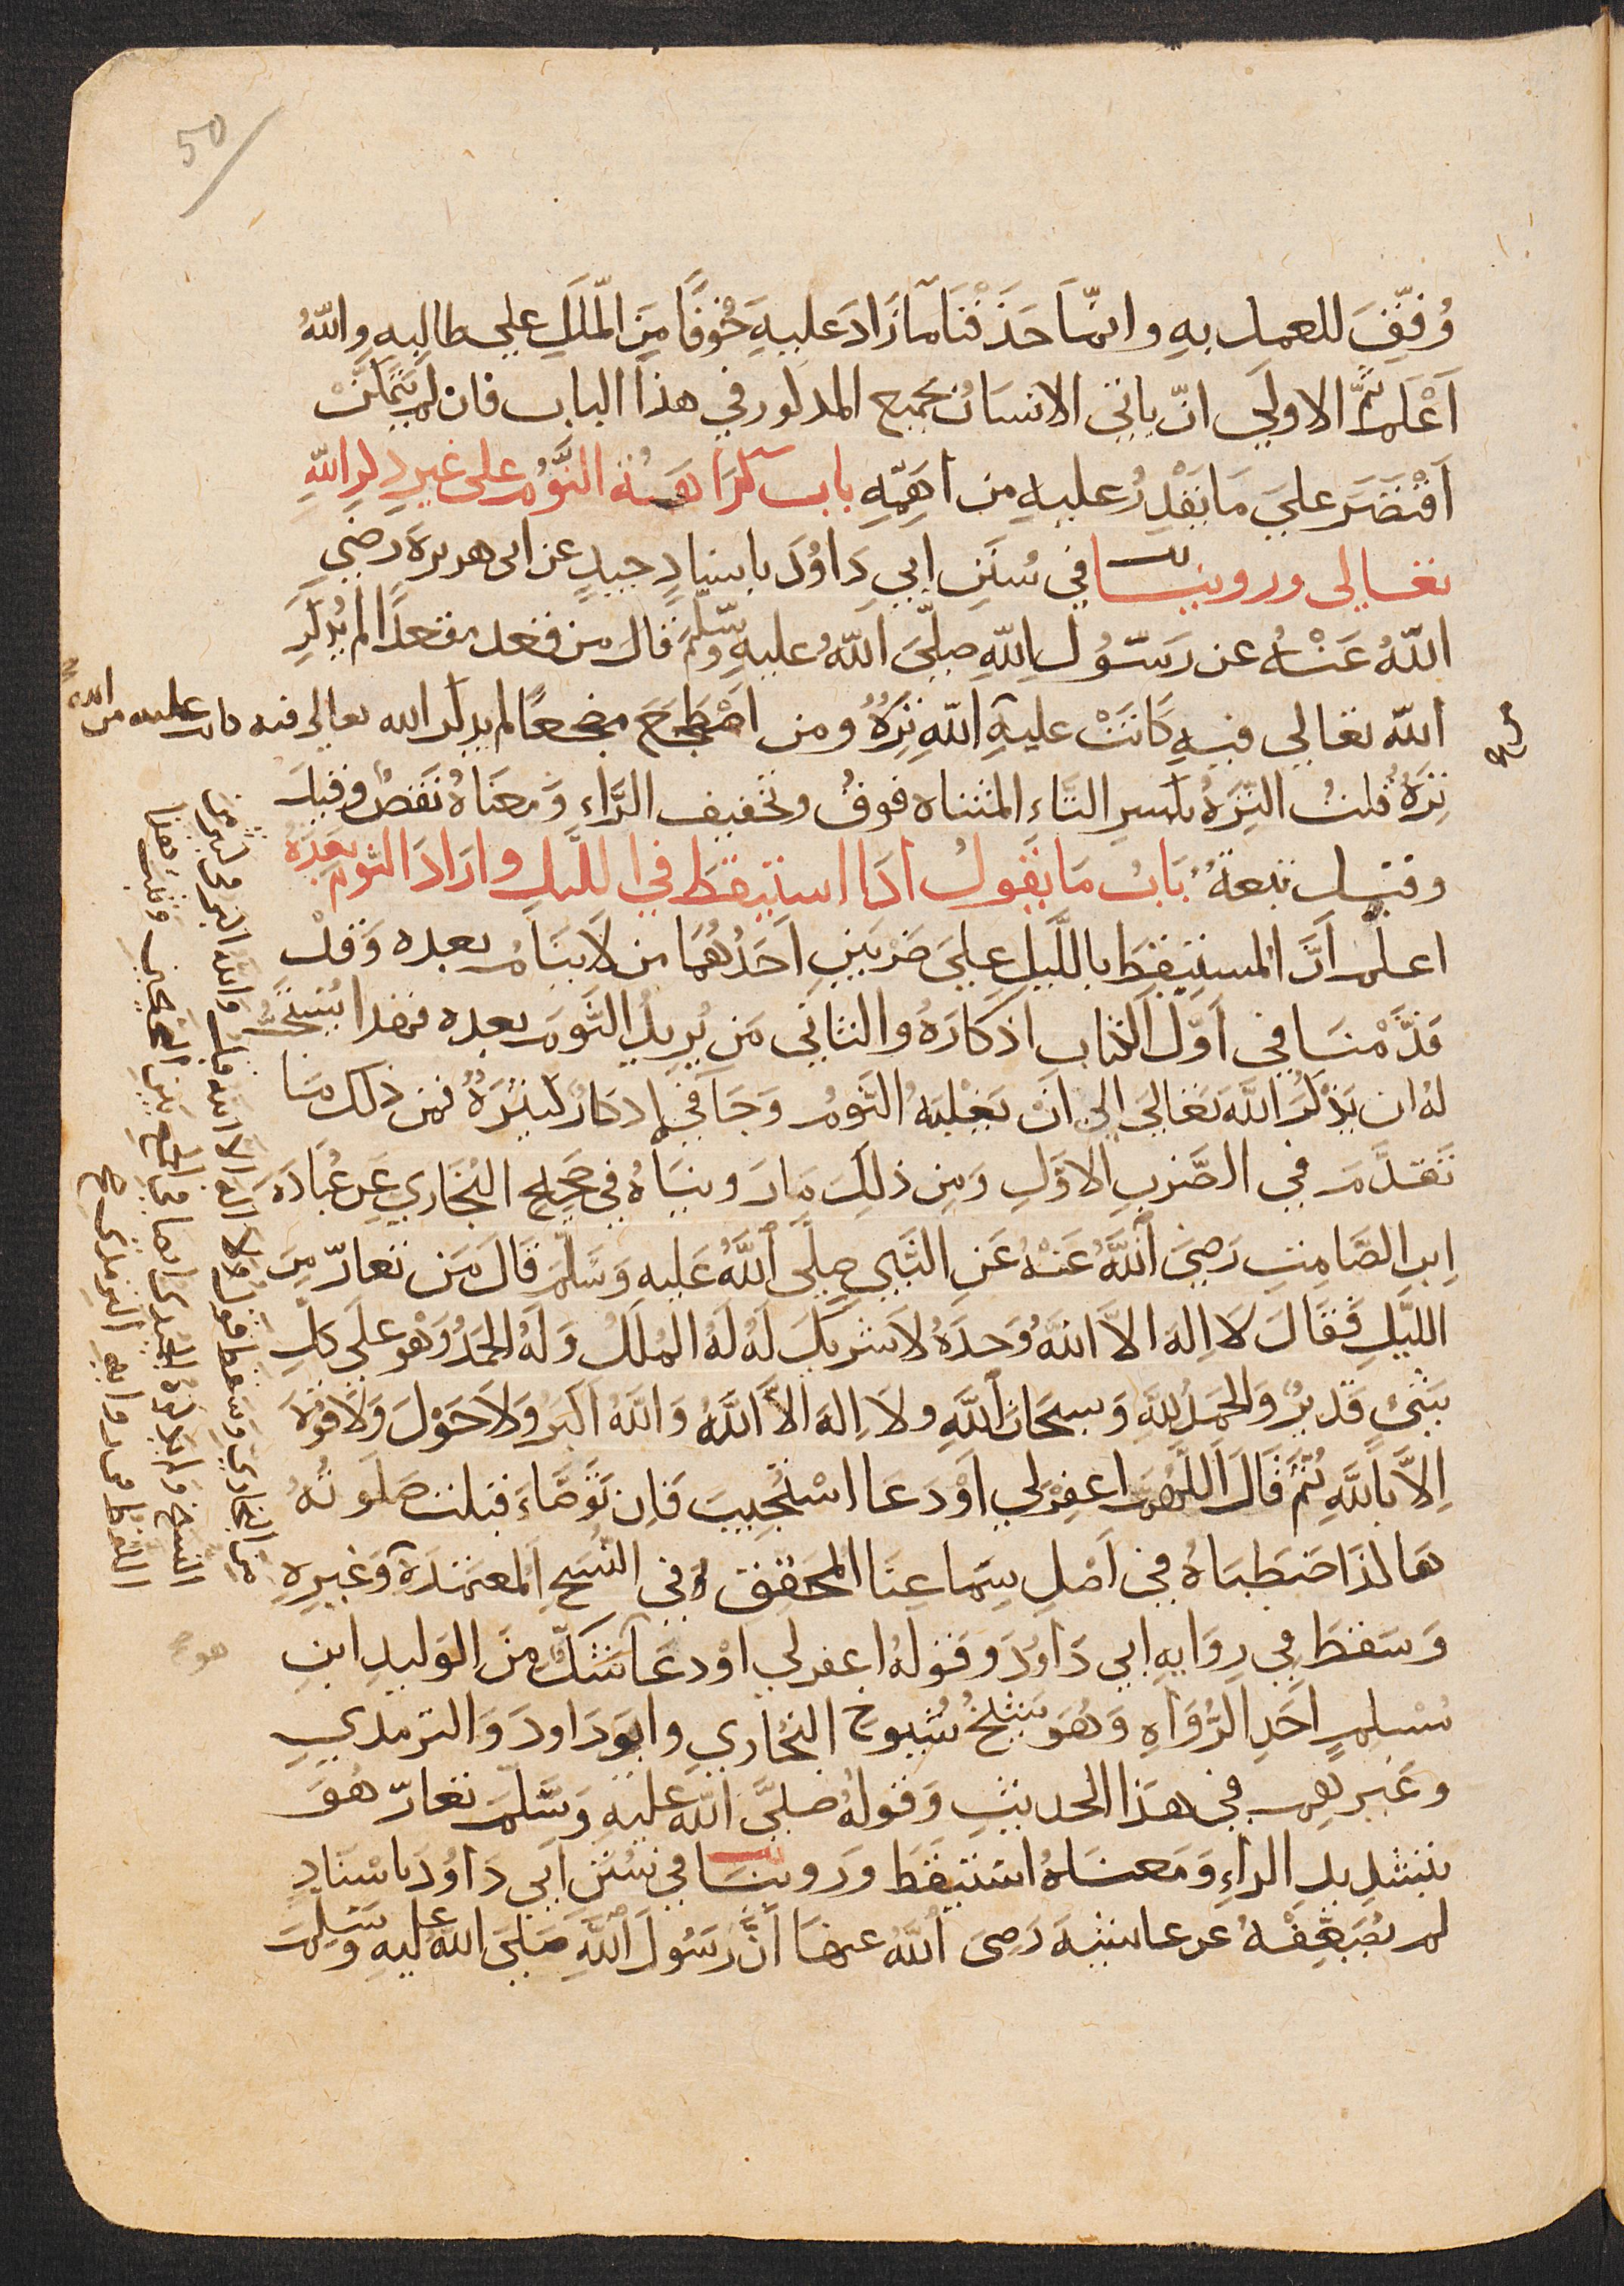 50
وُفِّقَ للعمل بهِ وانّما حَذَفْنَا مَا زَادَ عليهِ خَوْفًا مِنَ الْمَلَلِ علي طالبهِ واللهُ
اَعْلَم ثُمَّ الاولَي انّ ياتي الانسَانُ بجميع المدكور في هذا الباب فان لم يتَمكَّنْ
اَقْتَصَرَ عليَ مَا يَقْدِرُ عليهِ من اهَمِّهِ باب كَرَاهَةُ النَّوْمِ على غيرِ ذكرِ اللهِ
تعالي وروينَا في سُنَنِ ابي دَاوُدَ باسنادٍ جيدٍ عن ابى هريرة رضي
اللهُ عَنْهُ عن رسُولِ اللهِ صلّيَ اللهُ عليهِ وسَلَّمَ قال من قعد مقعدًا لم يُذكَرِ
اللهَ تعَالي فيهِ كَانَتْ عليهِ اللهِ تِرَةٌ ومن اضْطَجَعَ مضجعًا لم يذكر الله تعالى فيه كانت عليه من الله
تِرَةٌ قلتُ التِرَةُ بكسرِ التَّاءِ المثناه فوقُ وتخفيف الرَّاءِ وَمعنَاهُ نَقصٌ وقيلَ
وقيل تبعةٌ بَابُ مَا يَقولُ اذَا استيقظَ في اللّيلِ وارَادَ النّوم بَعدَهُ
اعلم انَّ المستيقظَ باللَّيلِ عليَ ضَرْبَينِ اَحَدُهُمَا من لَا ينَامُ بعده وَقَدْ
قَدَّمْنَا في اوّل الكتاب اذكارَهُ والثَاني مَن يُريدُ النَّومَ بعده فهذا يُستحَبُّ
لهُ ان يَذْكُرَ اللهَ تعَالَي الي انْ يَغْلِبَهُ النَّومُ وَجَا في اذكَارٌ كثيرَةٌ فمن ذلك مَا
تَقدَّمَ في الضَّربِ الاوَّلِ وَمِن ذلِكَ مَا رَوينَاهُ في صَحيحِ البُخَارِي عَن عُبَادَة
اِبنِ الصَّامِتِ رَضِيَ اَللَّهُ عَنْهُ عَنِ النَّبِي صلَّى اللَّهُ عَليه وَسَلَّمَ قَالَ مَن تعارّ مِنَ
اللَّيلِ فَقَالَ لَا اِلهَ الاَّ اللهُ وَحدَهُ لَا شَريكَ لَهُ لَهُ المُلكُ وَلَهُ الحَمدُ وَهْو عَلي كلِّ
شَيءٍ قَديرٌ وَالحَمدُ للهِ وَسبحَانَ اللهِ ولَا اِلهَ الاَّ اللهُ وَاللهُ اَكبَرُ وَلَا حَوْلَ وَلَا قوَّةَ
اِلاَّ بِاللَّهِ ثُمَّ قَالَ اَللَّهمَّ اغفِرْ لي اَوْ دَعَا اسْتُجيبَ فَاِن تَوَضَّاءَ قبلت صَلَوتُهُ
هَاكذَا ضَبَطنَاهُ في اَصْلِ سِمَاعِنَا المحَقق وَفي النُّسَخِ المعتَمَدَة وَغيرِهِ
وَسَقطَ في رِوَايهِ ابي دَاوُدَ وقولهُ اغفر لي اوْ دعَا شَكَّ مِنَ الوَليد ابنِ
مُسْلمٍ اَحَدِ الرُّوَاهِ وَهُوَ شَيْخُ شُيوخِ البُخَاري وابو دَاودَ وَالترمدي
وغَيرهِم في هذَا الحديثِ وَقولهُ صليَّ اللهُ عليهِ وَسَّلمَ تعارّ هُوَ
بتشديد الراءِ وَمَعنَاهُ استَيقظَ وَروينَا في سُنَنِ ابي دَاوُدَ باسْنَادٍ
لم يُضَعِّفْهُ عن عايشَةَ رَضِىَ اللَّهُ عنهَا اَنَّ رَسُولَ اللهِ صَلَّيَ اللهُ عليهِ وسَلِّمَ